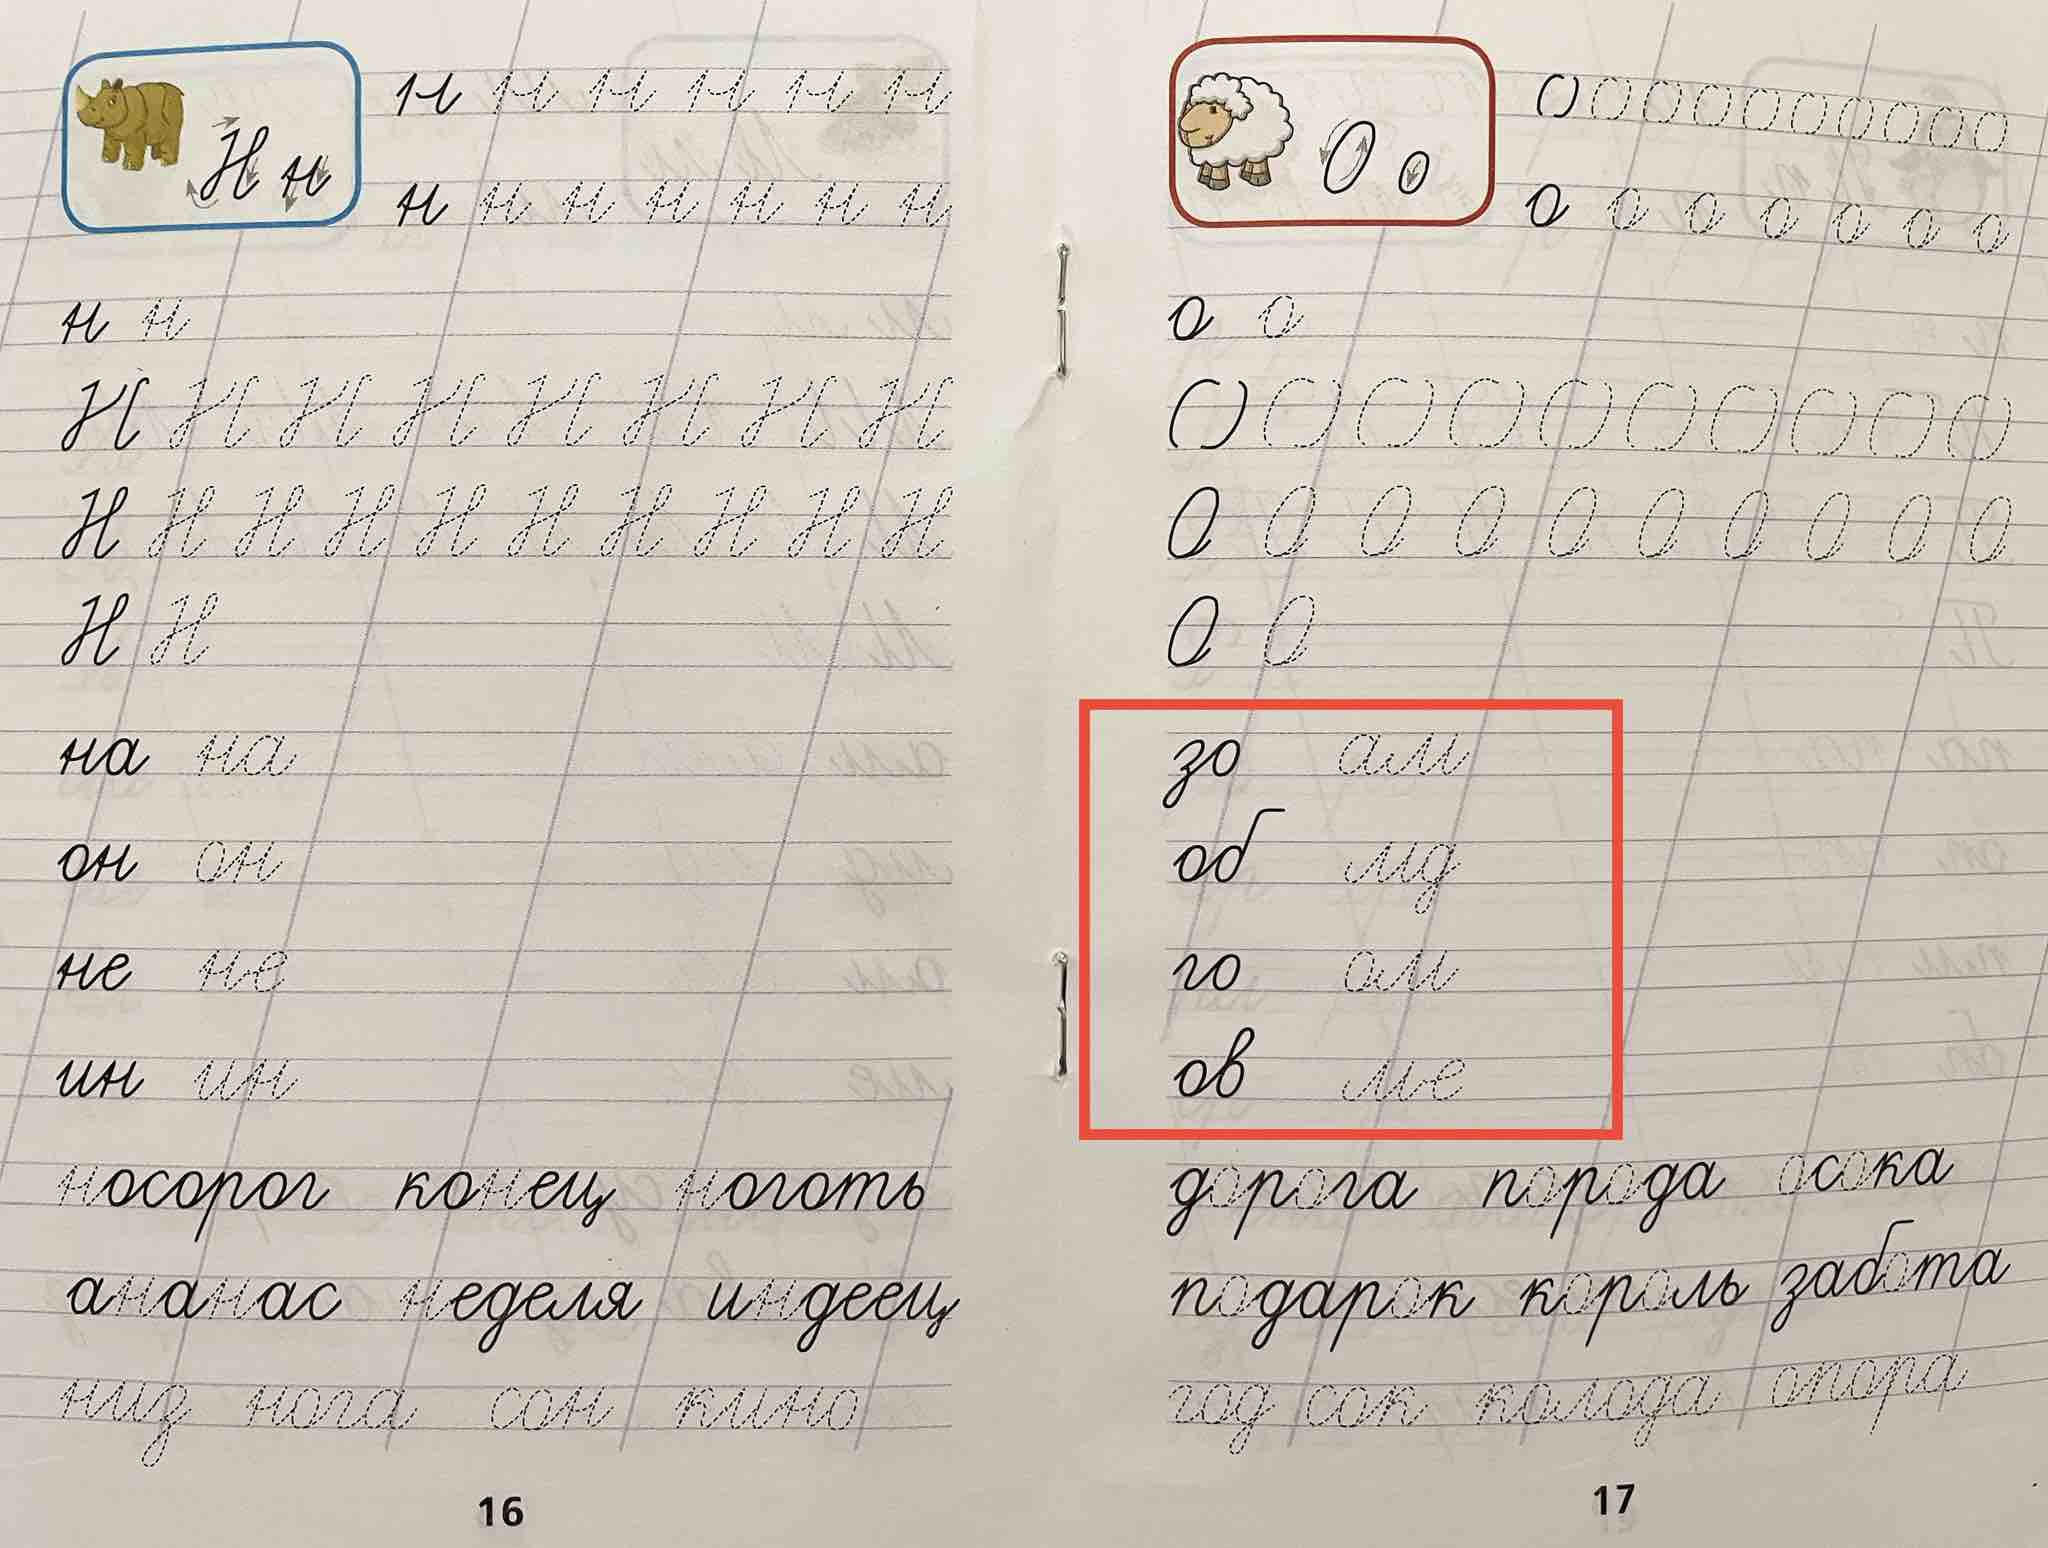 Н н
н н н н н н
н н н н н н н
н н
Н Н Н Н Н Н Н Н
Н Н Н Н Н Н Н Н Н Н
Н Н
на на
он он
не не
ин ин
носорог конец ноготь
ананас неделя индеец
низ нога сон кино
16
О о
О О О О О О О О О О
о о о о о о о
о о
О О О О О О О О О О
О О О О О О О О О О
О О
зо ам
об мд
го ам
ов ме
дорога порода осока
подарок король забота
год сок колода опора
17